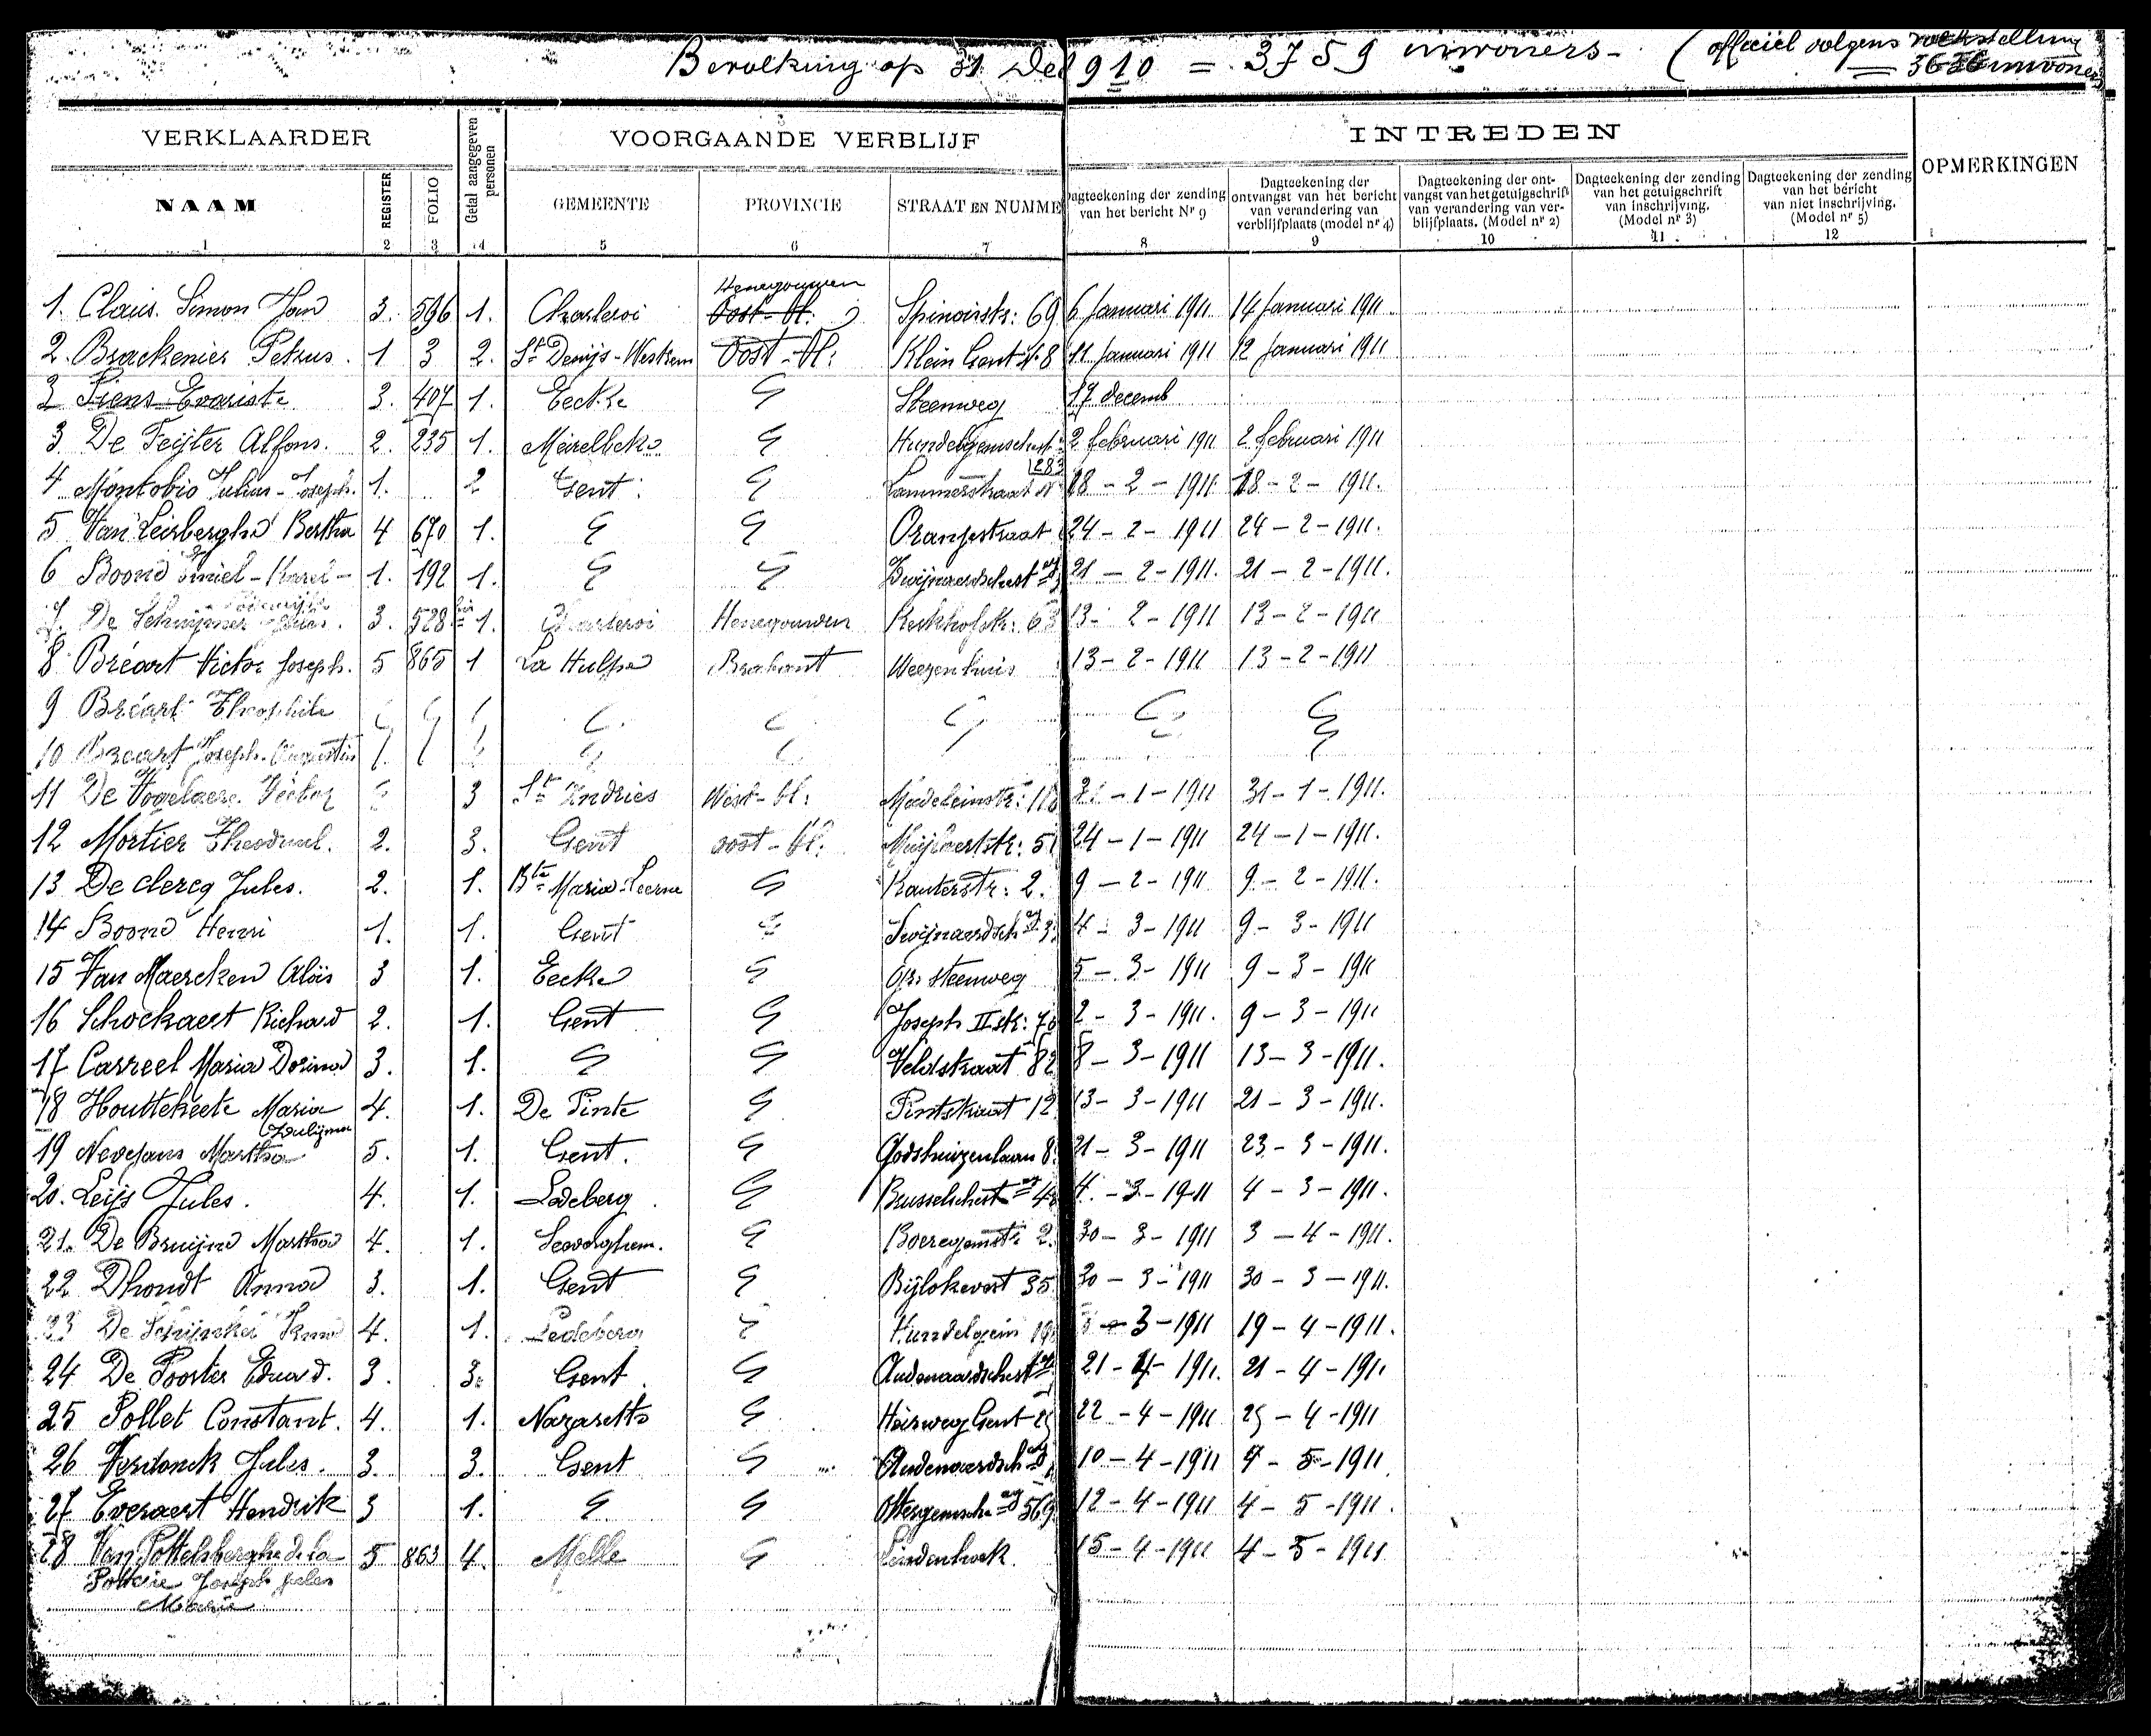 Bevolking op 31 Dec 1910 = 3759 inwoners - (officiël volgens volkstelling
= 3636 inwoners)
VERKLAARDER
Getal aangegeven personen
VOORGAANDE VERBLIJF
INTREDEN
OPMERKINGEN
NAAM REGISTER FOLIO GEMEENTE PROVINCIE STRAAT EN NUMME
Dagteekening der zending van het bericht Nr 9
Dagteekening der ontvangst van het bericht van verandering van verblijfplaats (model nr 4)
Dagteekening der ontvangst van het getuigschrift van verandering van verblijfplaats. (Model nr 2)
Dagteekening der zending van het getuigschrift van inschrijving. (Model nr 3)
Dagteekening der zending van het bericht van niet inschrijving. (Model nr 5)
1 2 3 4 5 6 7 8 9 10 11 12
1. Claus. Simon 3. 596 1. Charleroi Oost-Vl. Henegouwen 69 6 Januari 1911 14 Januari 1911
2. Brackenier Petrus. 1 3 2. St Denijs-Westrem Oost-Vl: Klein Gent N. 8 11 Januari 1911 12 Januari 1911
3 Fiens Evariste 3. 407 1. Eecke " Steenweg 17 decemb
3 De Feijter Alfons. 2. 235 1. Meirelbeke " 2 februari 1911 2 februari 1911
4 Montobio Julius-Joseph. 1. 2 Gent. " Lammerstraat 18-2-1911 18-2-1911.
5 Van Leirberghe Bertha 4 670 1. " " Oranjestraat 24-2-1911 24-2-1911.
6 Boone Emiel-Karel- 1. 192 1. " " 21-2-1911. 21-2-1911.
7. De Schuijmer 3. 528 1. Charleroi Henegouwen Kerkhofstr: 63 13-2-1911 13-2-1911
8 Bréart Victor Joseph. 5 865 1 La Hulpe Brabant Weezenhuis 13-2-1911 13-2-1911
9 Bréart Theophile " " " " " " " "
10 Breart Joseph. Augustin " " " " " " " "
11 De Vogelaere Victor " 3 St Andries West-Vl: Madeleinestr: 31-1-1911 31-1-1911.
12 Mortier 2. 3. Gent oost-Vl: 24-1-1911 24-1-1911.
13 De clercq Jules. 2. 1. Maria-Leerne " Kauterstr: 2. 9-2-1911 9-2-1911.
14 Boone Henri 1. 1. Gent " 4-3-1911 9-3-1911
15 Van Maercken Aloïs 3 1. Eecke " steenweg 5-3-1911 9-3-1911
16 Schockaert Richard 2. 1. Gent " Joseph II str: 2-3-1911. 9-3-1911
17 Carreel Maria Dorina 3. 1. " " Veldstraat 82 8-3-1911 13-3-1911.
18 Houttekeete Maria 4. 1. De Pinte " Pintstraat 12 13-3-1911 21-3-1911.
19 Nevejans Martha 5. 1. Gent. " Godshuizenlaan 8. 21-3-1911 23-3-1911.
20. Leijs Jules. 4. 1. Ledeberg. " 4-3-1911 4-3-1911.
21. De Bruijne Martha 4. 1. " 2. 30-3-1911 3-4-1911.
22 Dhondt Anna 3. 1. Gent " Bijlokevest 35. 30-3-1911 30-3-1911.
23 4. 1. Ledeberg " -3-1911 19-4-1911.
24 De Pooter Eduard. 3. 3. Gent. " 21-4-1911. 21-4-1911
25 Pollet Constant. 4. 1. Nazareth " Heirweg Gent 22-4-1911 25-4-1911
26 Verdonck Jules. 3. 3. Gent " 10-4-1911 4-5-1911
27 Everaert Hendrik 3 1. " " 569. 12-4-1911 4-5-1911.
28 Van Pottelsberghe de La 5 863 4. Melle " Lindenhoek. 15-4-1911 4-5-1911
Potterie Joseph Jules
Marie